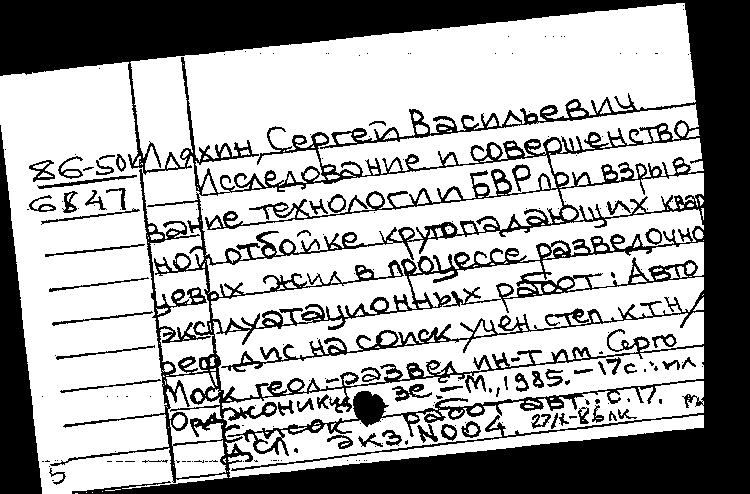 86-50к Иляхин, Сергей Васильевич.
6847 Исследование и совершенство-
вание технологии БВР при взрыв-
ной отбойке крутопадающих квар
цевых жил в процессе разведочно
эксплуатационных работ: Авто
реф. дис. на соиск. учен. степ. к.т.н. /
Моск. геол.-развед. ин-т им. Серго
Орджоникидзе.-М., 1985.-17с.: ил.
Список работ авт.: с. 17.
ДСП. Экз. N004. 27/X-86
5